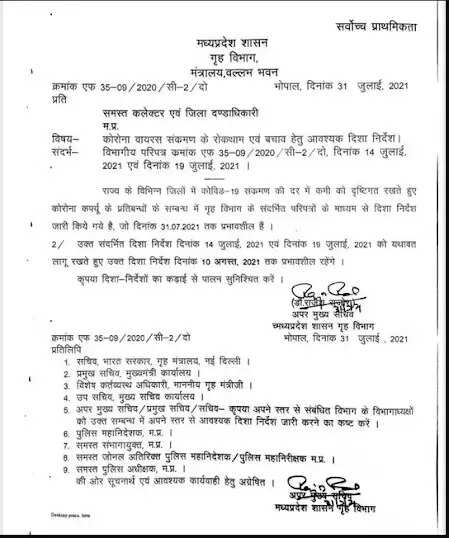 सर्वोच्च प्राथमिकता
मध्यप्रदेश शासन
गृह विभाग,
मंत्रालय,वल्लभ भवन
क्रमांक एफ 35-09/2020/सी-2/दो भोपाल, दिनांक 31 जुलाई, 2021
प्रति
समस्त कलेक्टर एवं जिला दण्डाधिकारी
म.प्र.
विषय- कोरोना वायरस संकमण के रोकथाम एवं बचाव हेतु आवश्यक दिशा निर्देश।
संदर्भ- विभागीय परिपत्र कमांक एफ 35-09/2020/सी-2/दो, दिनांक 14 जुलाई,
2021 एवं दिनांक 19 जुलाई, 2021 ।
राज्य के विभिन्न जिलों में कोविड-19 संकमण की दर में कमी को दृष्टिगत रखते हुए
कोरोना कर्फ्यू के प्रतिबन्धों के सम्बन्ध में गृह विभाग के संदर्भित परिपत्रों के माध्यम से दिशा निर्देश
जारी किये गये है, जो दिनांक 31.07.2021 तक प्रभावशील हैं ।
2/ उक्त संदर्भित दिशा निर्देश दिनांक 14 जुलाई, 2021 एवं दिनांक 19 जुलाई, 2021 को यथावत
लागू रखते हुए उक्त दिशा निर्देश दिनांक 10 अगस्त, 2021 तक प्रभावशील रहेंगे ।
कृपया दिशा-निर्देशों का कडाई से पालन सुनिश्चित करें ।
(डॉ.राजेश राजौरा)
अपर मुख्य सचिव
मध्यप्रदेश शासन गृह विभाग
क्रमांक एफ 35-09/2020/सी-2/दो भोपाल, दिनांक 31 जुलाई, 2021
प्रतिलिपि
1. सचिव, भारत सरकार, गृह मंत्रालय, नई दिल्ली ।
2. प्रमुख सचिव, मुख्यमंत्री कार्यालय ।
3. विशेष कर्तव्यस्थ अधिकारी, माननीय गृह मंत्रीजी ।
4. उप सचिव, मुख्य सचिव कार्यालय ।
5. अपर मुख्य सचिव/प्रमुख सचिव/सचिव- कृपया अपने स्तर से संबंधित विभाग के विभागाध्यक्षों
को उक्त सम्बन्ध में अपने स्तर से आवश्यक दिशा निर्देश जारी करने का कष्ट करें ।
6. पुलिस महानिदेशक, म.प्र. ।
7. समस्त संभागायुक्त, म.प्र. ।
8. समस्त जोनल अतिरिक्त पुलिस महानिदेशक/पुलिस महानिरीक्षक म.प्र. ।
9. समस्त पुलिस अधीक्षक, म.प्र. ।
की ओर सूचनार्थ एवं आवश्यक कार्यवाही हेतु अग्रेषित ।
अपर मुख्य सचिव
मध्यप्रदेश शासन गृह विभाग